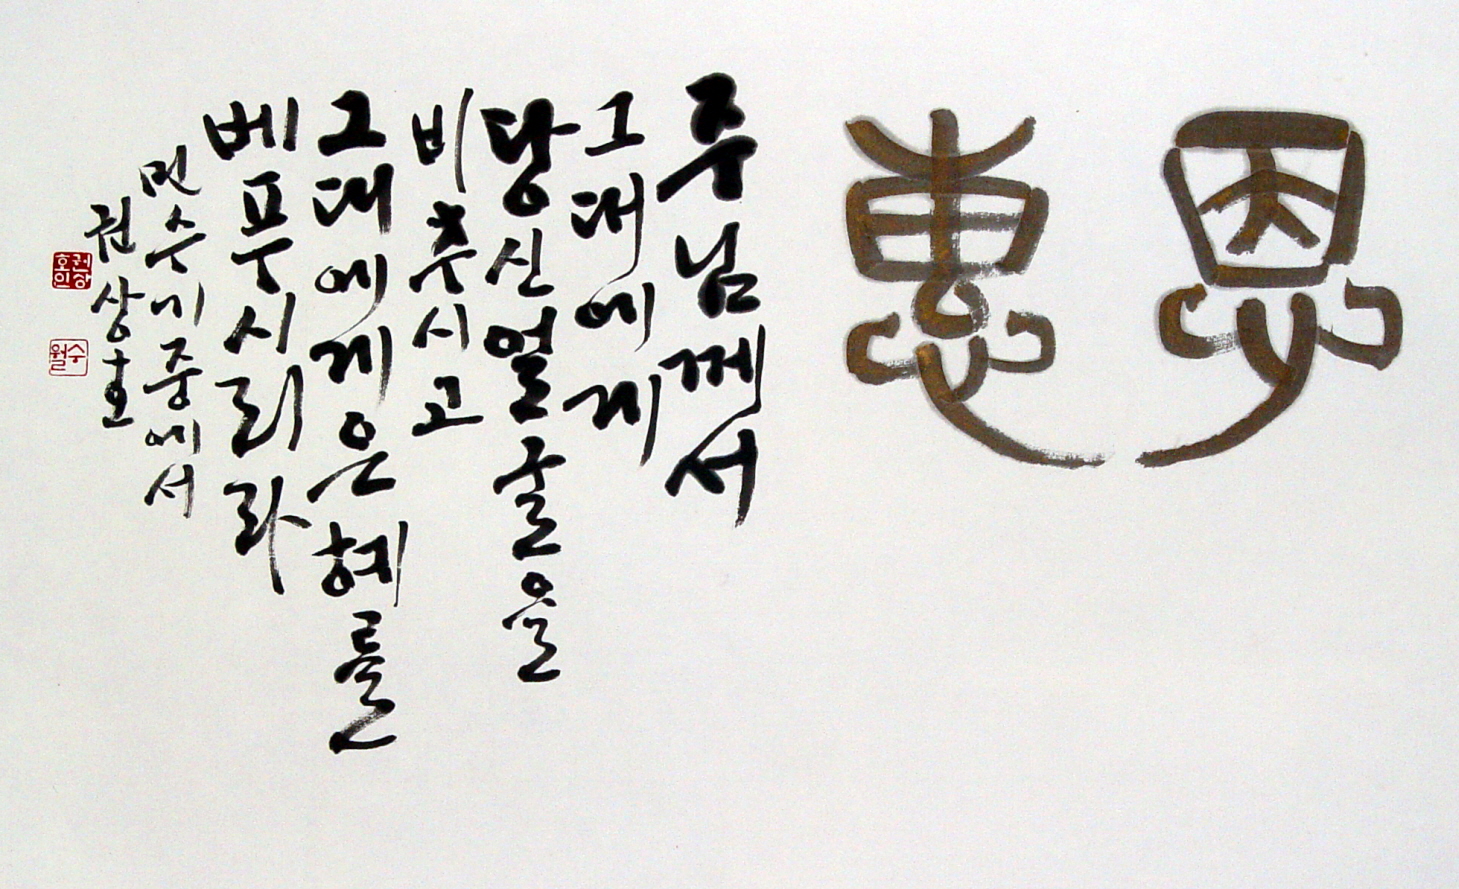 恩惠
주님께서
그대에게
당신얼굴을
비추시고
그대에게은혜를
베푸시리라
민수기중에서
권상호
권상호인
수월